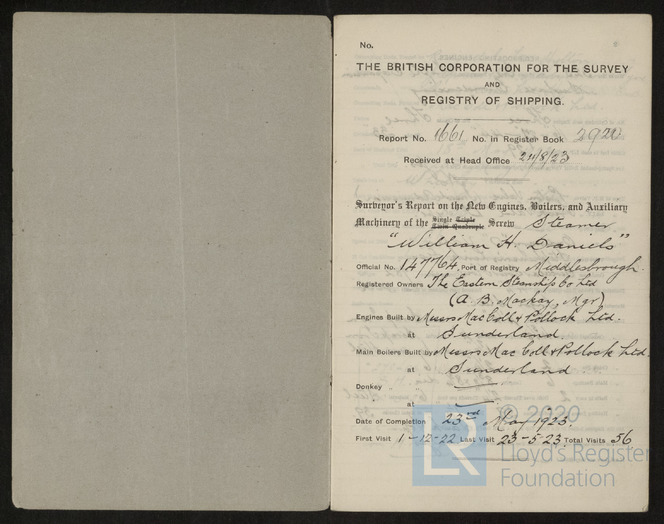 No.
THE BRITISH CORPORATION FOR THE SURVEY
AND
REGISTRY OF SHIPPING.
Report No. 1661 No. in Register Book 2920
Received at Head Office 24/8/23
Surveyor's Report on the New Engines, Boilers, and Auxiliary
Machinery of the Single Triple Twin Quadruple Screw Steamer
"William H. Daniels"
Official No. 147764. Port of Registry Middlesbrough.
Registered Owners The Eastern Steamship Co Ltd
(A. B. Mackay, Mgr)
Engines Built by Messrs Mac Coll & Pollock Ltd.
at Sunderland.
Main Boilers Built by Messrs Mac Coll & Pollock Ltd.
at Sunderland
Donkey —
at —
Date of Completion 23rd May 1923.
First Visit 1-12-22 Last Visit 23-5-23 Total Visits 56
LR © 2020
Lloyd's Register
Foundation